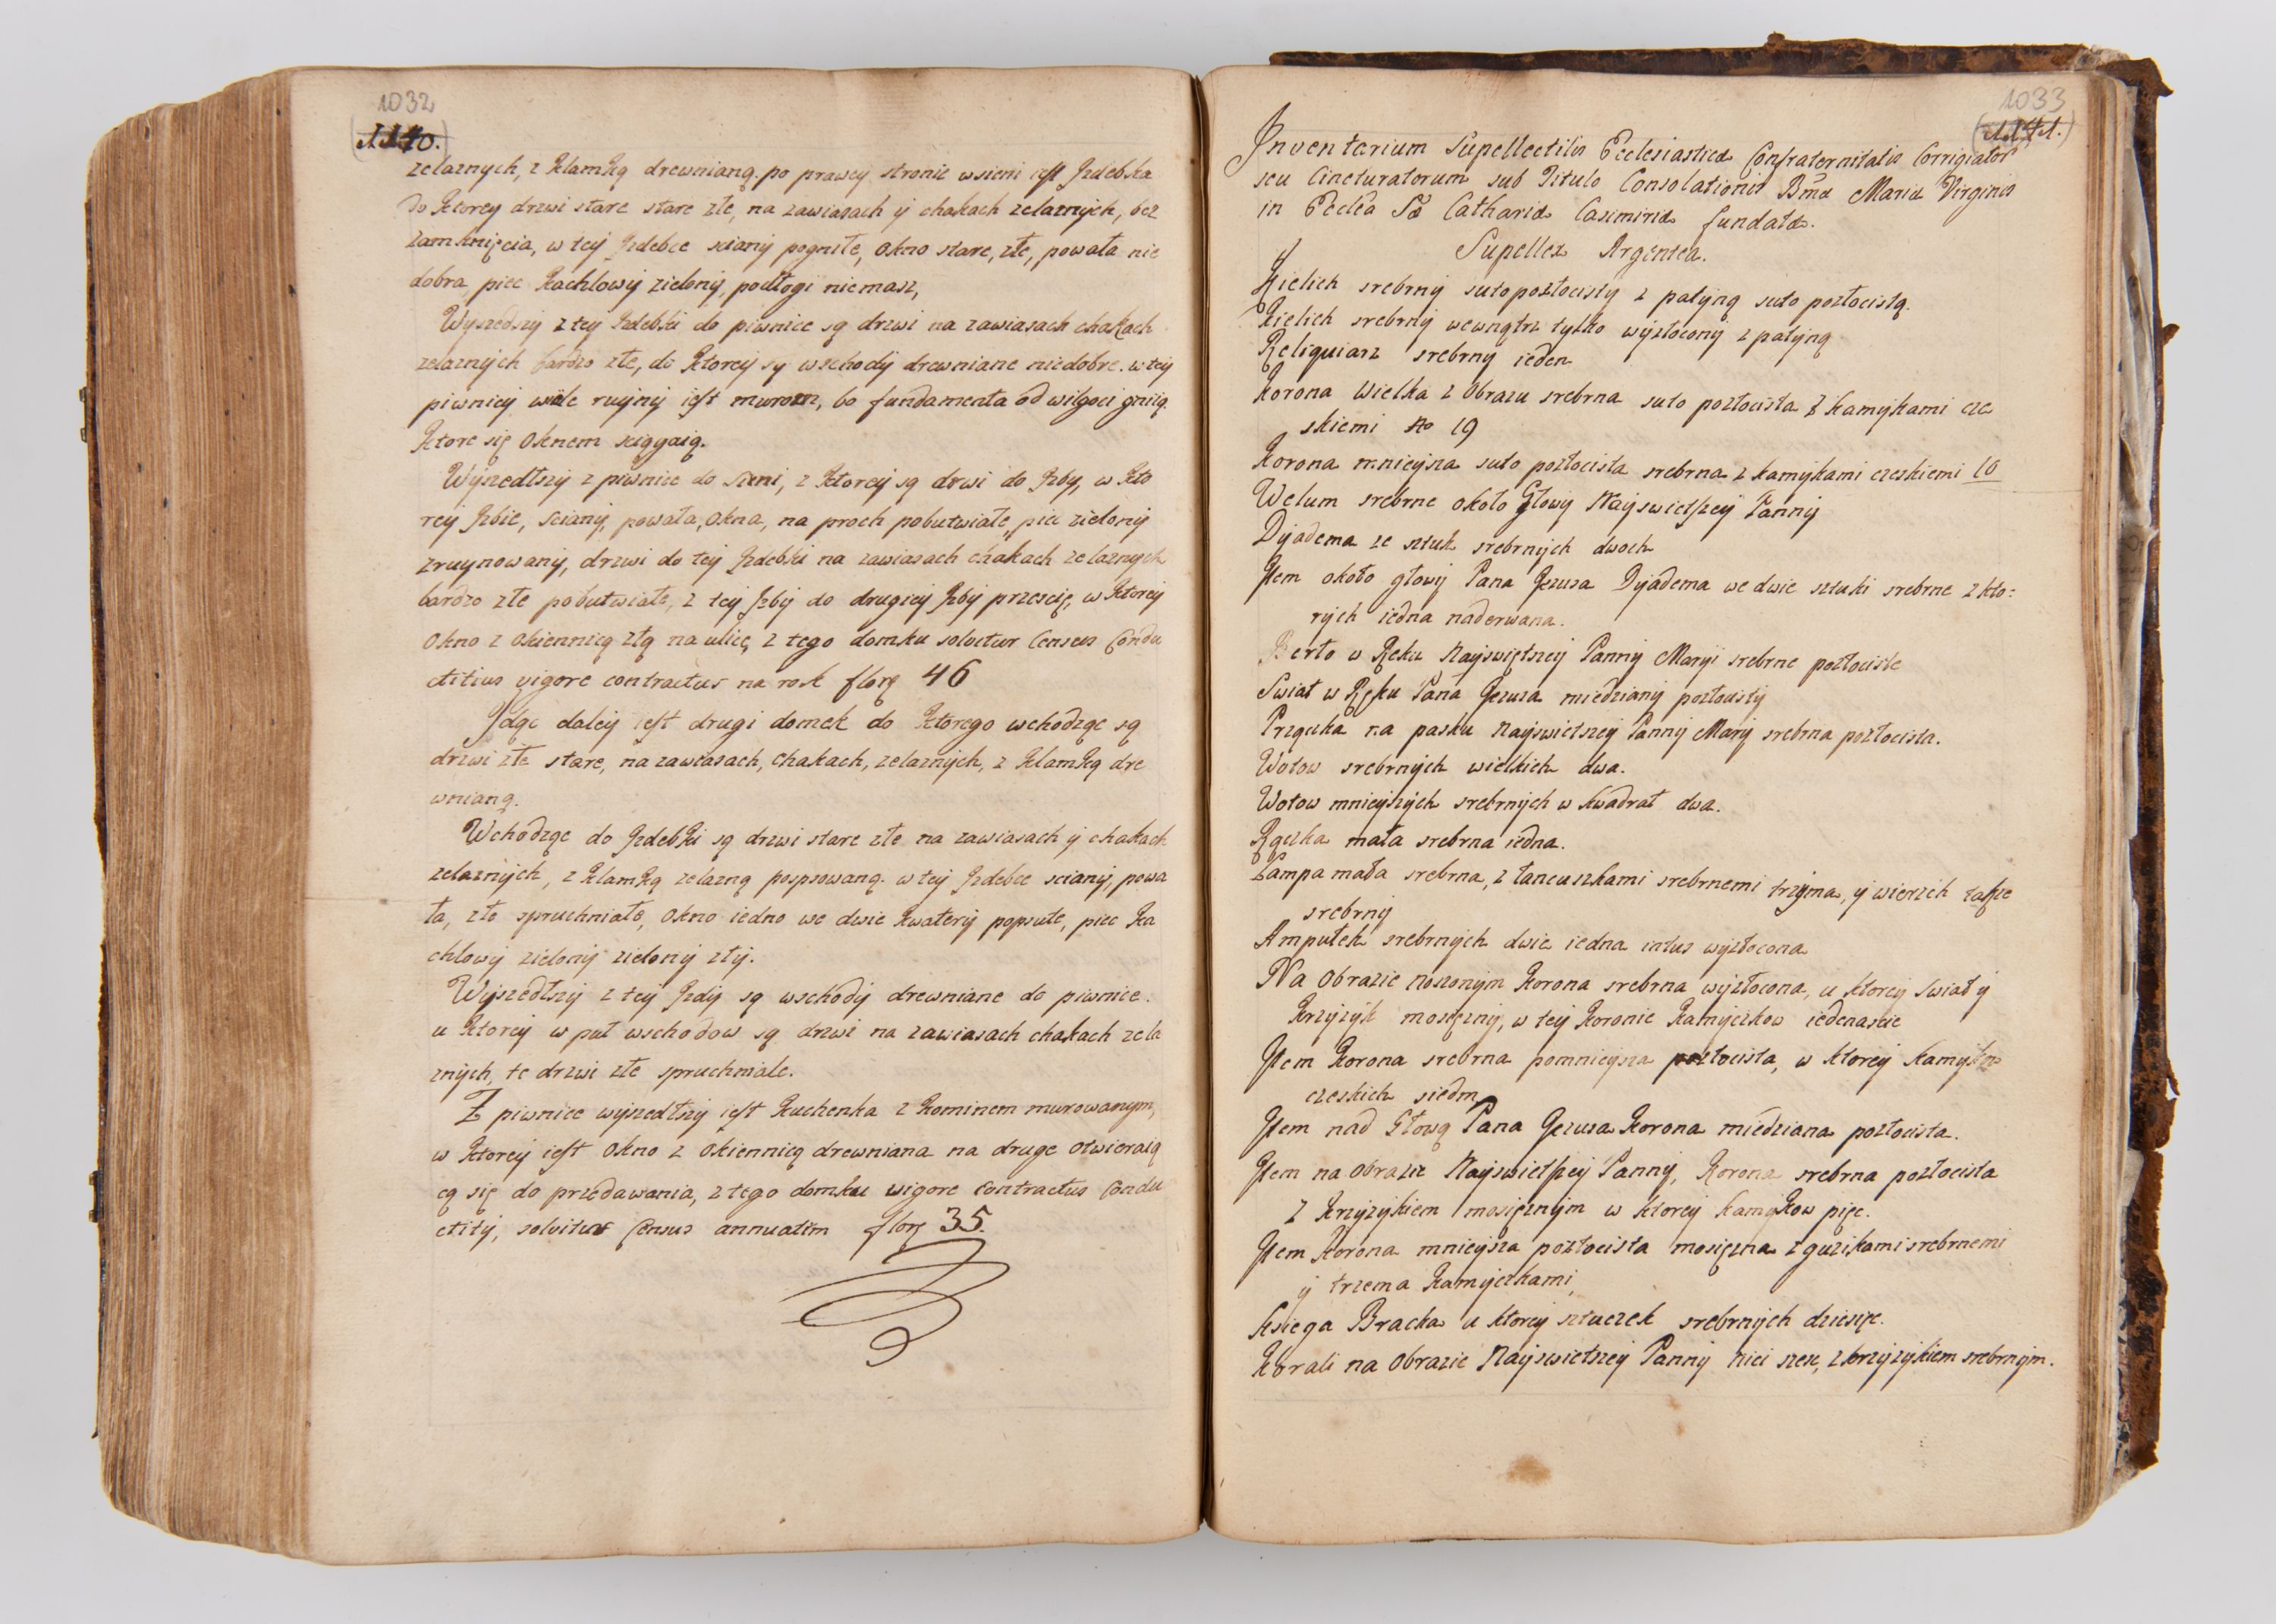 1032
1140.
zelaznych, z klamką drewnianą. po prawey stronie wsieni iest Jzdebka
do ktorey drzwi stare stare złe, na zawiasach y chakach zelaznych, bez
zamknięcia, w tey Jzdebce sciany pogniłe, okno stare, złe, powała nie
dobra, piec kachlowy zielony, podłogi niemasz,
Wyszedszy z tey Jzdebki do piwnice są drzwi na zawiasach chakach
zelaznych bardzo złe, do ktorey są wschody drewniane niedobre. w tey
piwnicy wiele ruyny iest murom, bo fundamenta od wilgoci gniią
ktore się oknem sciągaią.
Wyszedłszy z piwnice do sieni, z ktorey są drwi do Jzby, w kto
rey Jzbie, sciany, powała, okna, na proch pobutwiałe, piec zielony
zruynowany, drzwi do tey Jzdebki na zawiasach chakach zelaznych
bardzo złe pobutwiałe, z tey Jzby do drugiey Jzby przescie, w ktorey
okno z okiennicą złą na ulicę, z tego domku solvitur Census Condu
ctitius vigore contractus na rok flor 46
Jdąc daley iest drugi domek do ktorego wchodząc są
drzwi złe stare, na zawiasach, chakach, zelaznych, z klamką dre
wnianą.
Wchodząc do Jzdebki są drzwi stare złe na zawiasach y chakach
zelaznych, z klamką zelazną popsowaną. w tey Jzdebce sciany, powa
ła, złe spruchniałe, okno iedno we dwie kwatery popsute, piec ka
chlowy zielony zielony zły.
Wyszedłszy z tey Jzdy są wschody drewniane do piwnice.
u ktorey w puł wschodow są drzwi na zawiasach chakach zela
znych, te drzwi złe spruchniałe.
Z piwnice wyszedłszy iest kuchenka z kominem murowanym,
w ktorey iest okno z okiennicą drewniana na druge otwieraią
cą się do przedawania, z tego domku vigore contractus condu
ctity, solvitur Census annuatim flor 35.
1033
1141.
Jnventarium Supellectilis Ecclesiasticæ Confraternitatis Corrigiator
seu Cincturatorum sub Titulo Consolationis Bmæ Mariæ Virginis
in Eccleã Sæ Catharinæ Casimiriæ fundatæ.
Supellex Argentea.
Kielich srebrny suto pozłocisty z patyną suto pozłocistą.
Kielich srebrny wewnątrz tylko wyzłocony z patyną
Reliquiarz srebrny ieden
Korona wielka z obrazu srebrna suto pozłocista z kamykami cze
skiemi No 19
Korona mnieysza suto pozłocista srebrna z kamykami czeskiemi 16
Welum srebrne około Głowy Nayswietszey Panny
Dyadema ze sztuk srebrnych dwoch
Jtem około głowy Pana Jezusa Dyadema we dwie sztuki srebrne z kto:
rych iedna naderwana.
Berło w Ręku Nayswiętszey Panny Maryi srebrne pozłociste
Swiat w Ręku Pana Jezusa miedziany pozłocisty
Prząszka na pasku Nayswietszey Panny Mary srebrna pozłocista.
Wotow srebrnych wielkich dwa.
Wotow mnieyszych srebrnych w kwadrat dwa.
Rączka mała srebrna iedna.
Lampa mała srebrna, z łancuszkami srebrnemi trzyma, y wierzch takze
srebrny
Ampułek srebrnych dwie iedna intus wyzłocona
Na obrazie noszonym korona srebrna wyzłocona, u ktorey Swiat y
krzyzyk mosiężny, w tey koronie kamyczkow iedenascie
Jtem korona srebrna pomnieysza pozłocista, w ktorey kamykow
czeskich siedm
Jtem nad Głową Pana Jezusa korona miedziana pozłocista.
Jtem na obrazie Nayswietszey Panny, korona srebrna pozłocista
z krzyzykiem mosięznym w ktorey kamykow pięc.
Jtem korona mnieysza pozłocista mosięzna z guzikami srebrnemi
y trzema kamyczkami,
Księga Bracka u ktorey sztuczek srebrnych dziesięc.
Korali na obrazie Nayswietszey Panny nici szesc, z krzyzykiem srebrnym.